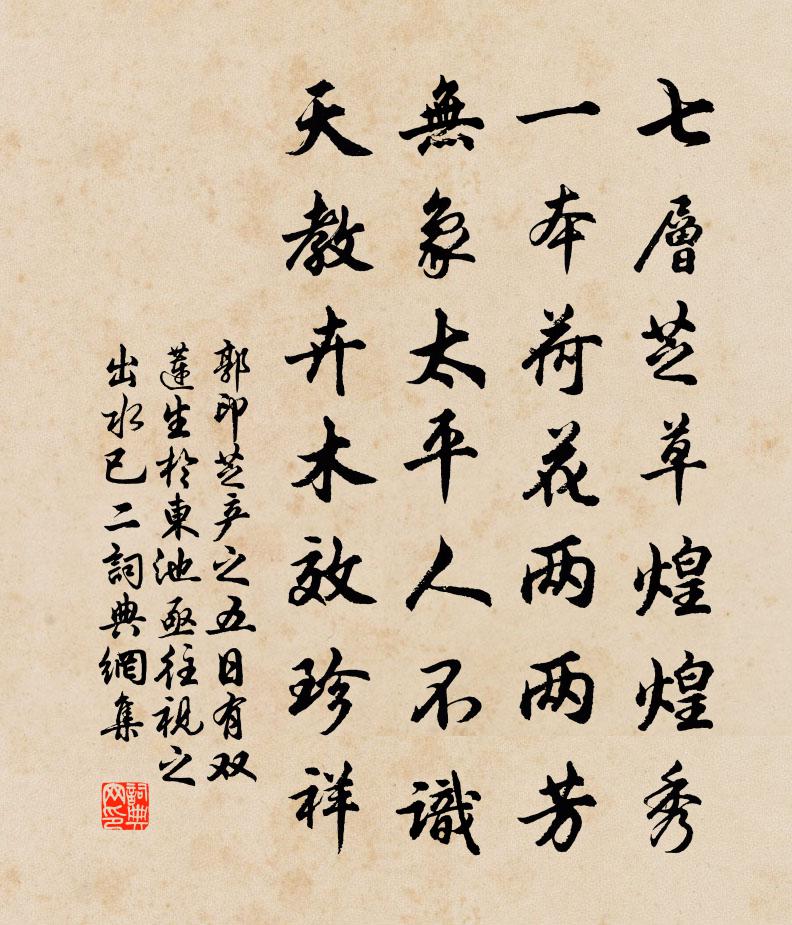 七層芝草煌煌秀
一本荷花两两芳
無象太平人不識
天教卉木效珍祥
郭印芝产之五日有双
蓮生於東池亟往視之
出水已二詞典網集
詞典
网印